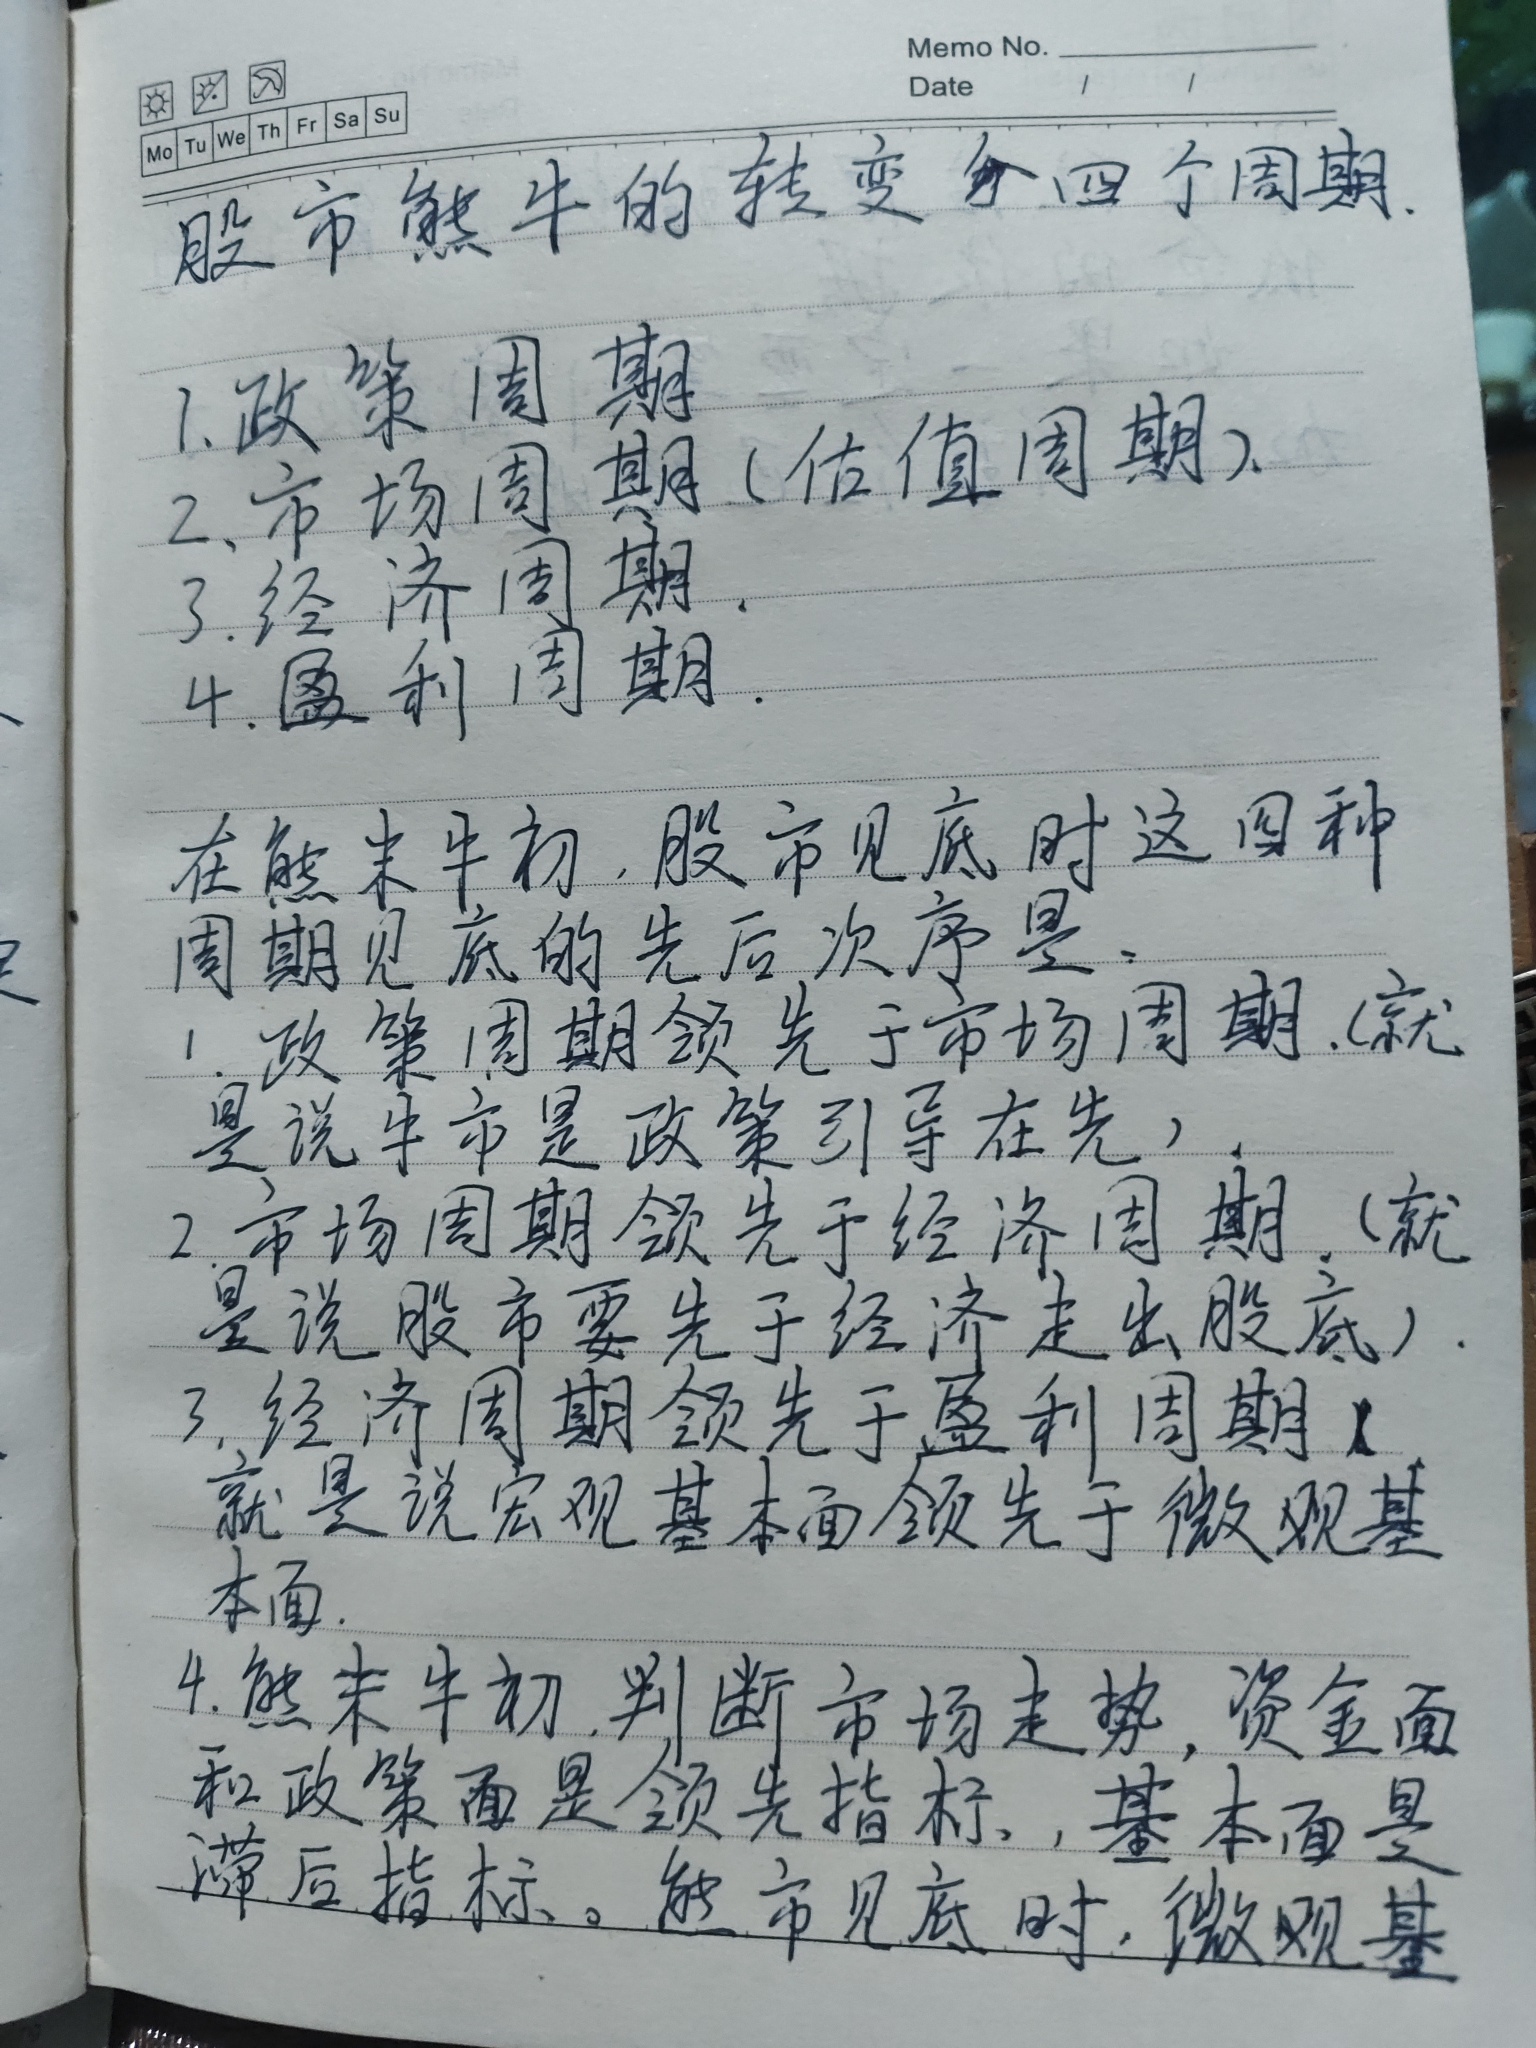 Memo No.
Date / /
Mo Tu We Th Fr Sa Su
股市熊牛的转变分四个周期.
1.政策周期
2、市场周期(估值周期)、
3.经济周期.
4.盈利周期.
在熊末牛初.股市见底时这四种
周期见底的先后次序是:
1.政策周期领先于市场周期.(就
是说牛市是政策引导在先).
2.市场周期领先于经济周期.(就
是说股市要先于经济走出股底).
3.经济周期领先于盈利周期.
就是说宏观基本面领先于微观基
本面.
4.熊末牛初.判断市场走势,资金面
和政策面是领先指标.,基本面是
滞后指标。熊市见底时.微观基